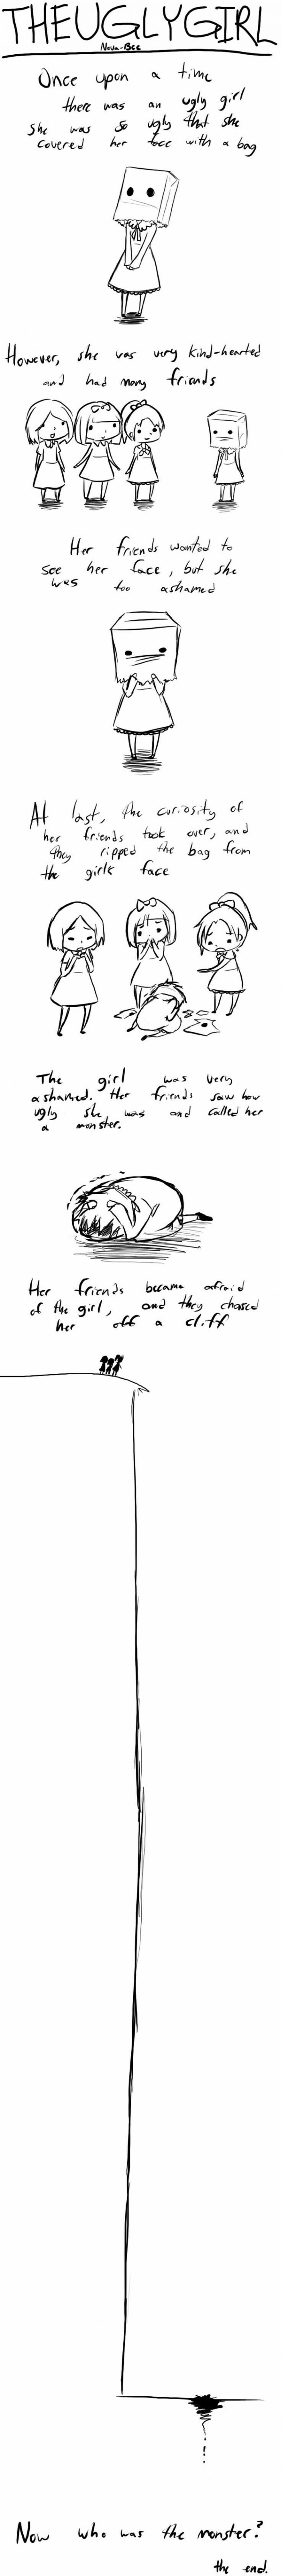 THE UGLY GIRL
Nova-Bee
Once upon a time
there was an ugly girl
She was so ugly that she
covered her face with a bag
However, she was very kind-hearted
and had many friends
Her friends wanted to
see her face, but she
was too ashamed
At last, the curiosity of
her friends took over, and
they ripped the bag from
the girls face
The girl was very
ashamed. Her friends saw how
ugly she was and called her
a monster.
Her friends became afraid
of the girl, and they chased
her off a cliff
Now who was the monster?
the end.